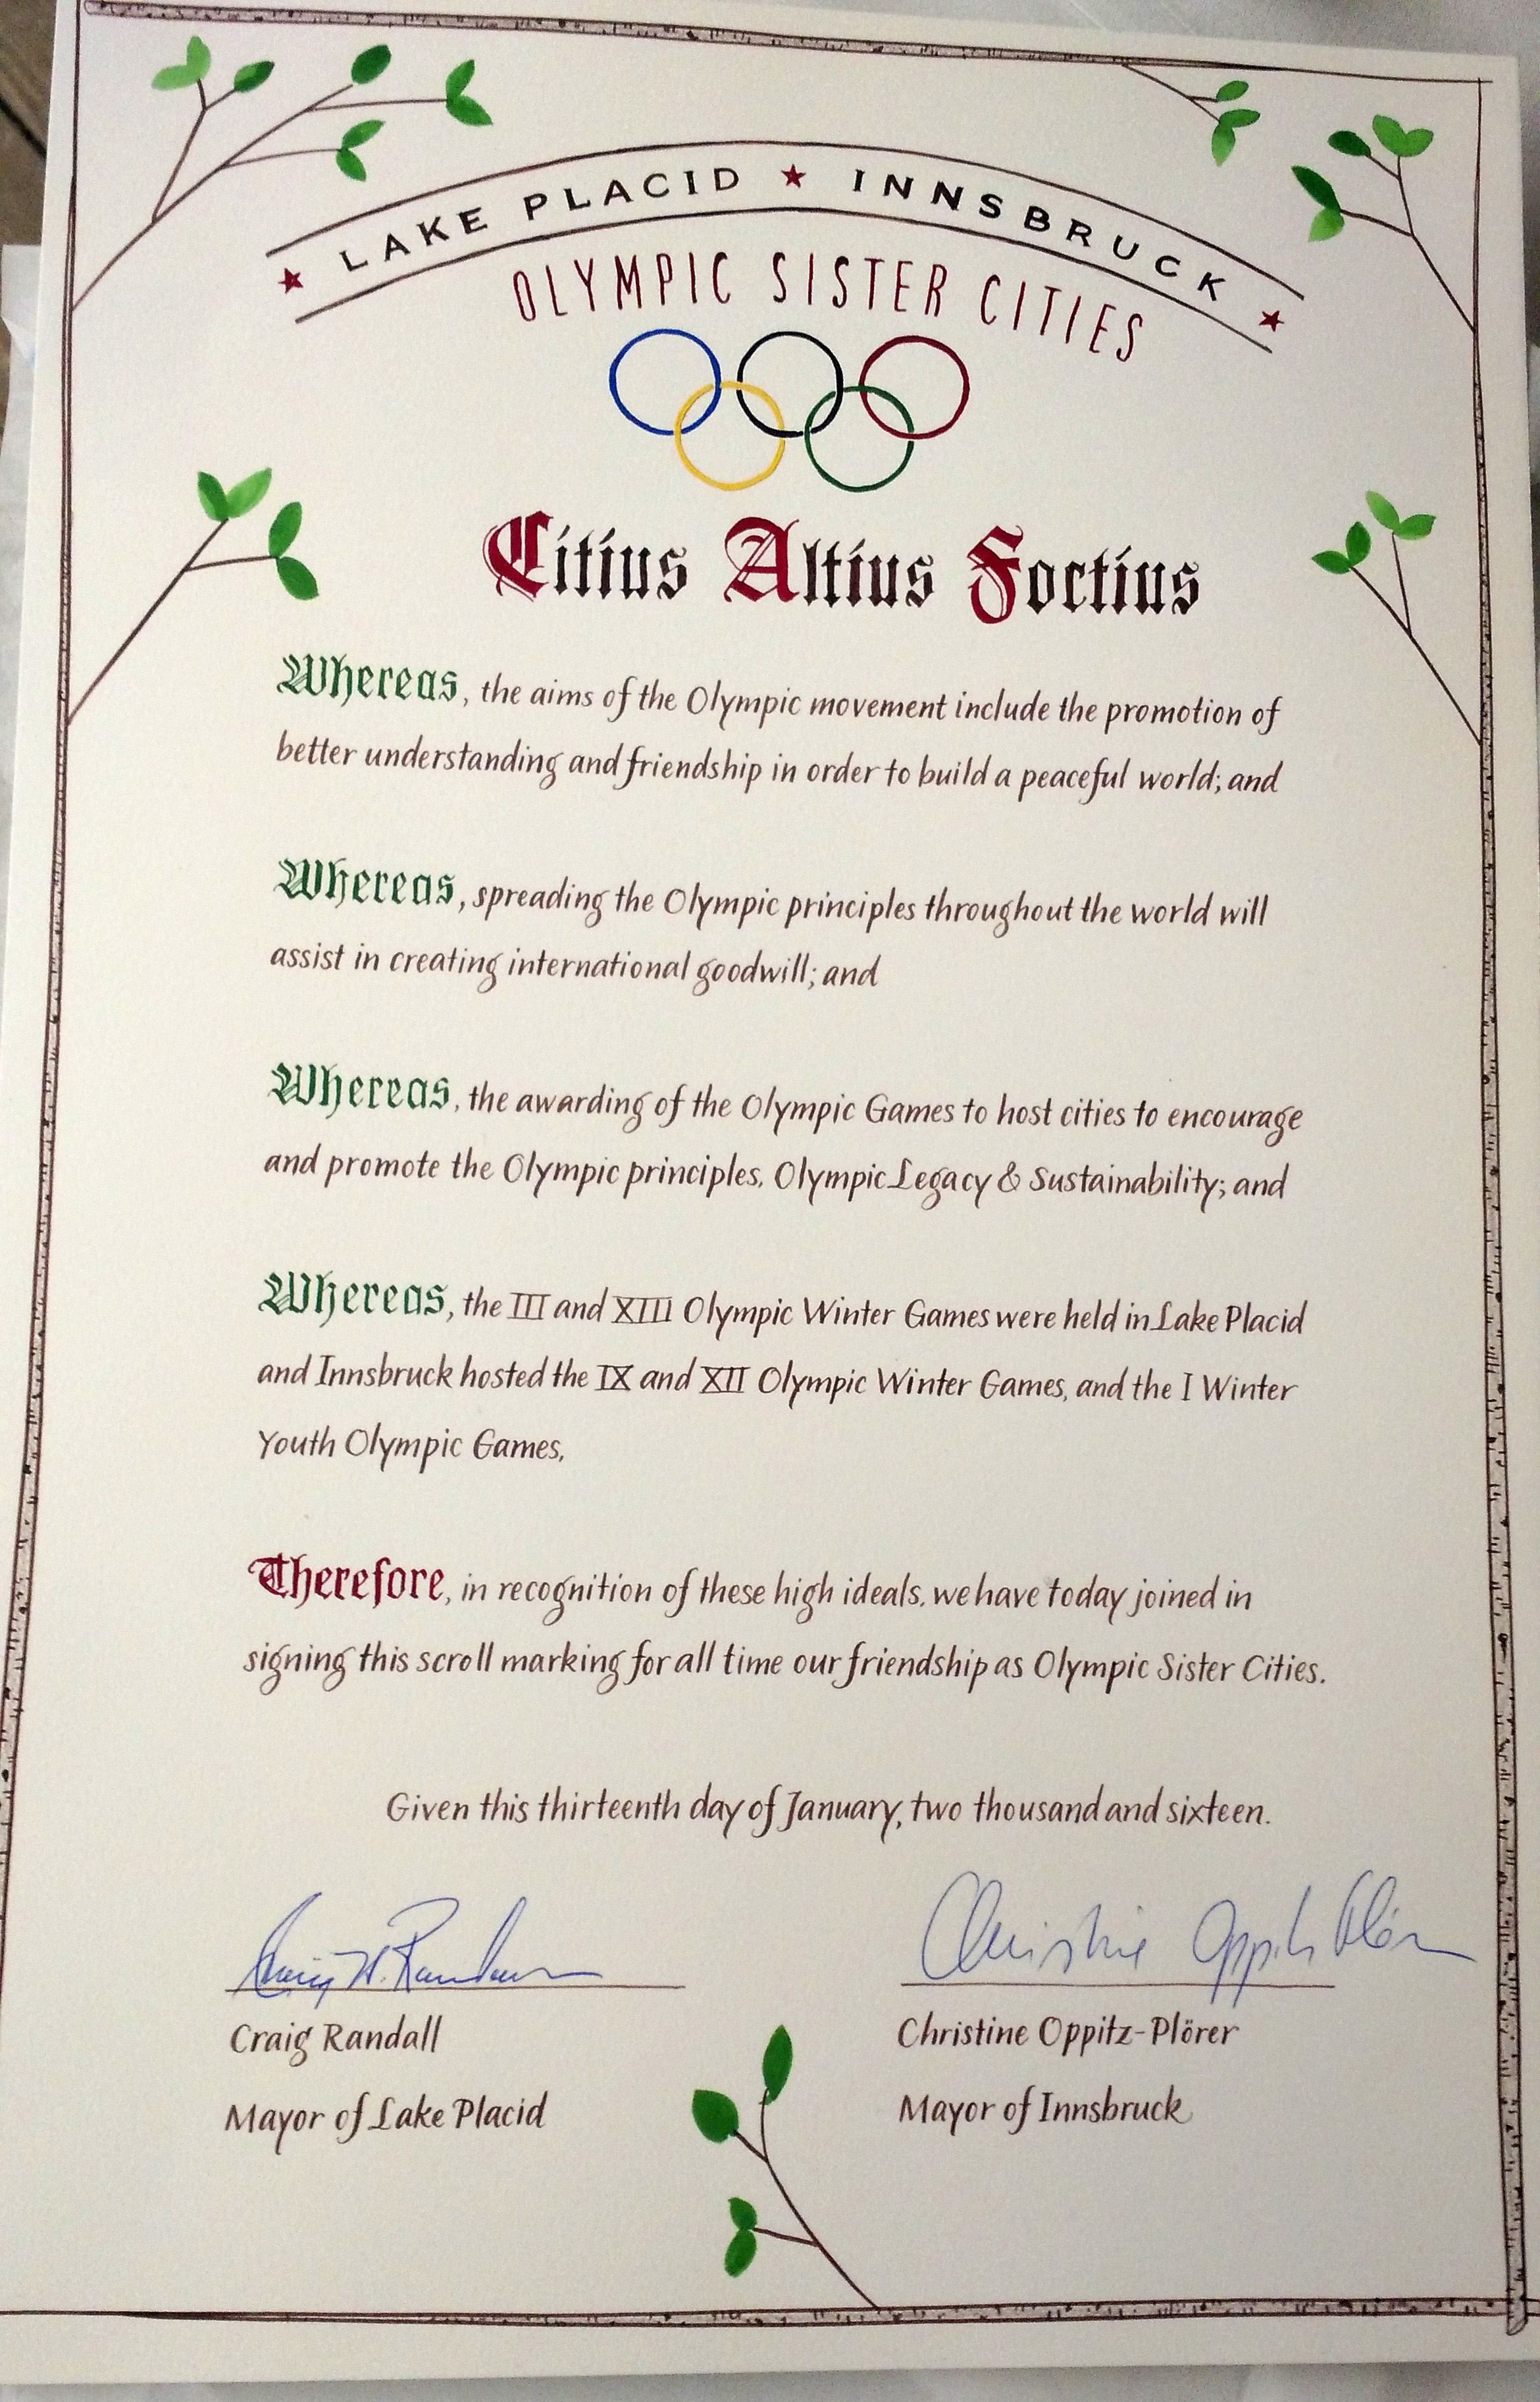 ★ LAKE PLACID ★ INNSBRUCK ★
OLYMPIC SISTER CITIES
Citius Altius Fortius
Whereas, the aims of the Olympic movement include the promotion of
better understanding and friendship in order to build a peaceful world; and
Whereas, spreading the Olympic principles throughout the world will
assist in creating international goodwill; and
Whereas, the awarding of the Olympic Games to host cities to encourage
and promote the Olympic principles, Olympic Legacy & Sustainability; and
Whereas, the III and XIII Olympic Winter Games were held in Lake Placid
and Innsbruck hosted the IX and XII Olympic Winter Games, and the I Winter
Youth Olympic Games,
Therefore, in recognition of these high ideals, we have today joined in
signing this scroll marking for all time our friendship as Olympic Sister Cities.
Given this thirteenth day of January, two thousand and sixteen.
Craig H. Randall
Christine Oppitz-Plörer
Craig Randall
Christine Oppitz-Plörer
Mayor of Lake Placid
Mayor of Innsbruck